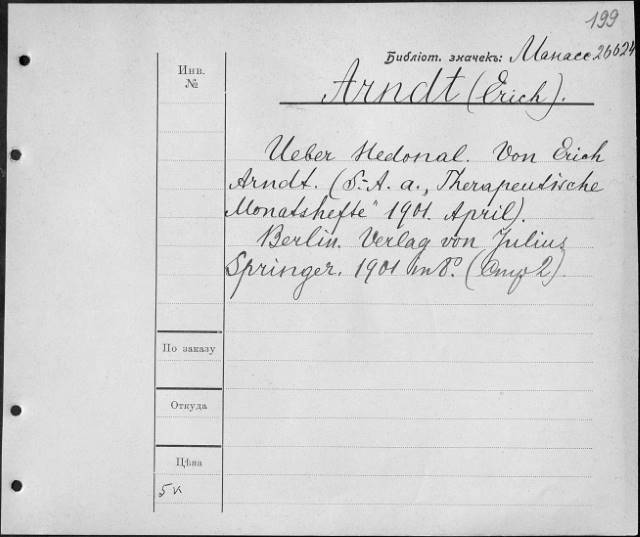 199
Библіот. значекъ: Манасс 26624
Инв.
№
Arndt (Erich).
Ueber Hedonal. Von Erich
Arndt. (S.-A. a. „Therapeutische
Monatshefte" 1901. April).
Berlin. Verlag von Julius
Springer. 1901 in 8º. (Стр 2)
По заказу
Откуда
Цѣна
5 к